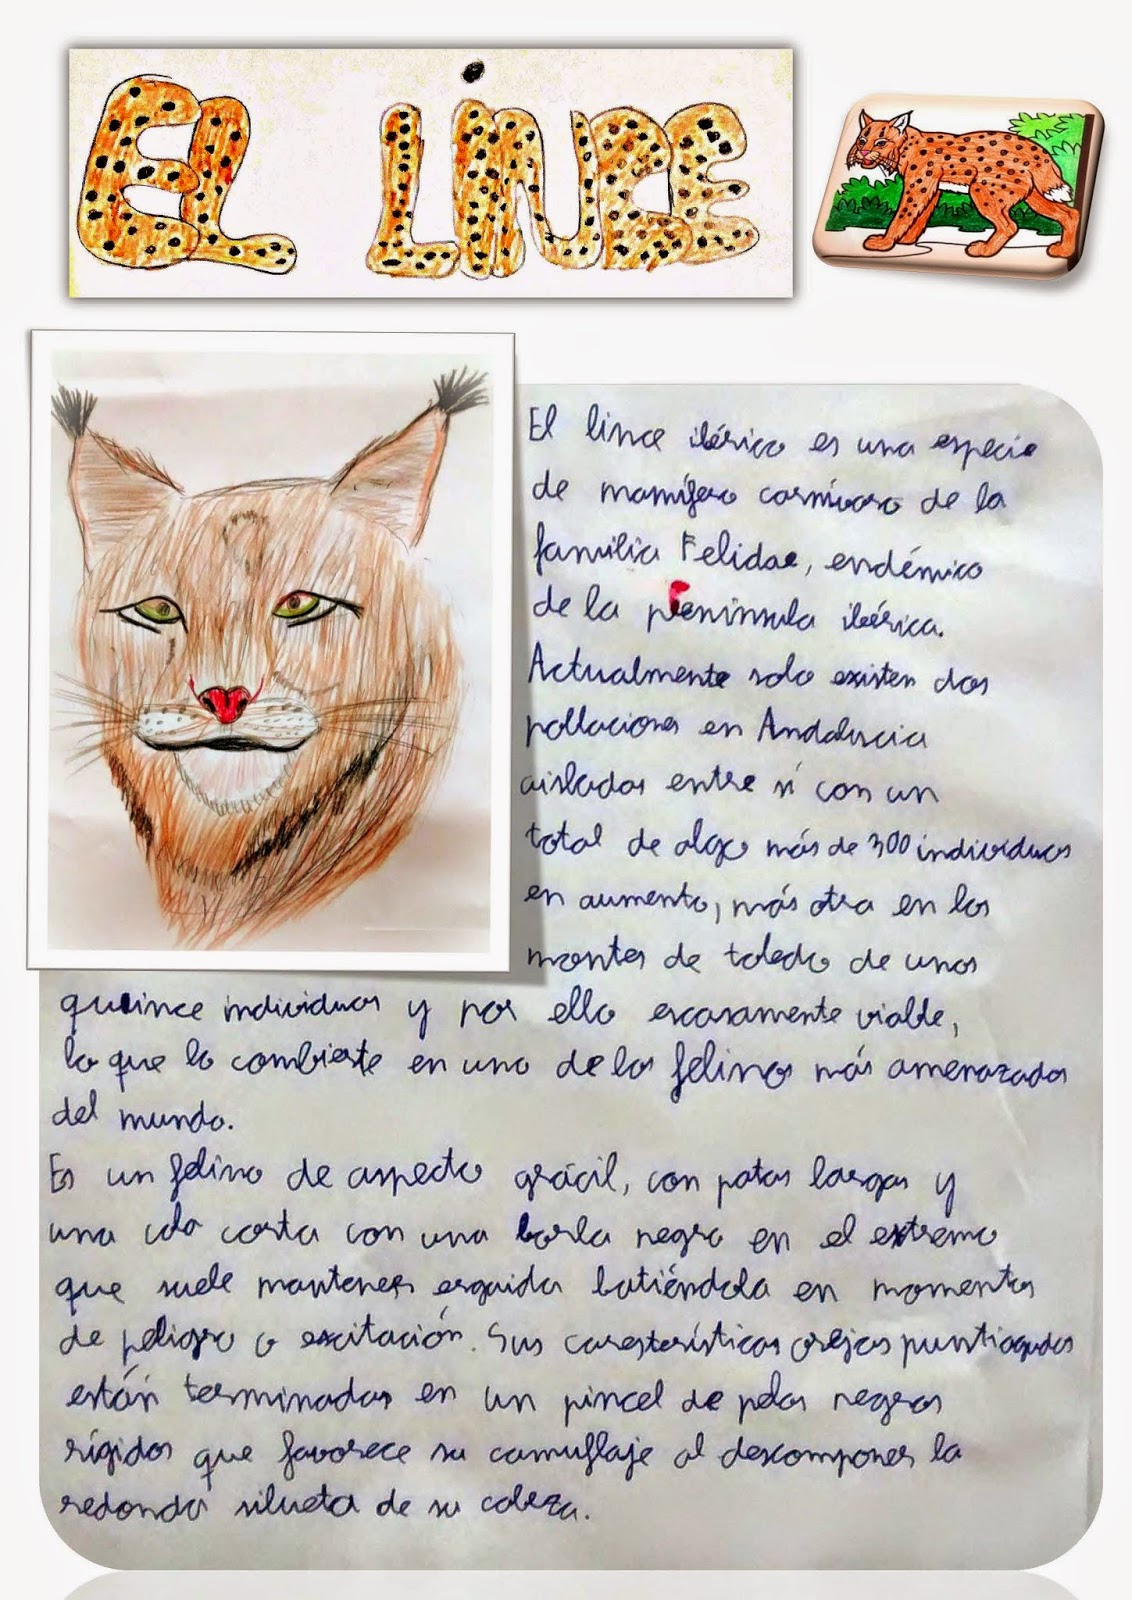 EL LINCE
El lince ibérico es una especie
de mamífero carnívoro de la
familia Felidae, endémico
de la península ibérica.
Actualmente solo existen dos
poblaciones en Andalucia
aisladas entre sí con un
total de algo más de 300 individuos
en aumento, más otra en los
montes de toledo de unos
quince individuos y por ello escasamente viable,
lo que lo combierte en uno de los felinos más amenazados
del mundo.
Es un felino de aspecto grácil, con patas largas y
una cola corta con una borla negra en el extremo
que suele mantener erguida batiéndola en momentos
de peligro o excitación. Sus caresterísticas orejas puntiagudas
están terminadas en un pincel de pelos negros
rígidos que favorece su camuflaje al descomponer la
redonda silueta de su cabeza.